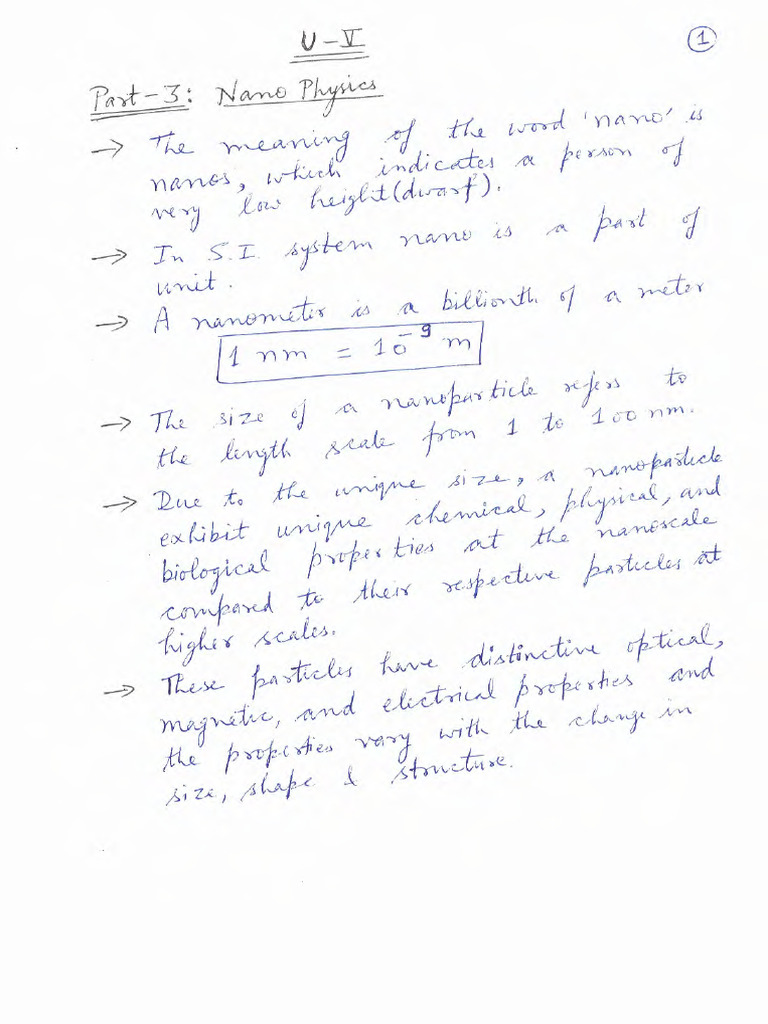 U-V
1
Part-3: Nano Physics
→ The meaning of the word 'nano' is
nanos, which indicates a person of
very low height(dwarf).
→ In S.I. system nano is a part of
unit.
→ A nanometer is a billionth of a meter
1 nm = 10⁻⁹ m
→ The size of a nanoparticle refers to
the length scale from 1 to 100 nm.
→ Due to the unique size, a nanoparticle
exhibit unique chemical, physical, and
biological properties at the nanoscale
compared to their respective particles at
higher scales.
→ These particles have distinctive optical,
magnetic, and electrical properties and
the properties vary with the change in
size, shape & structure.